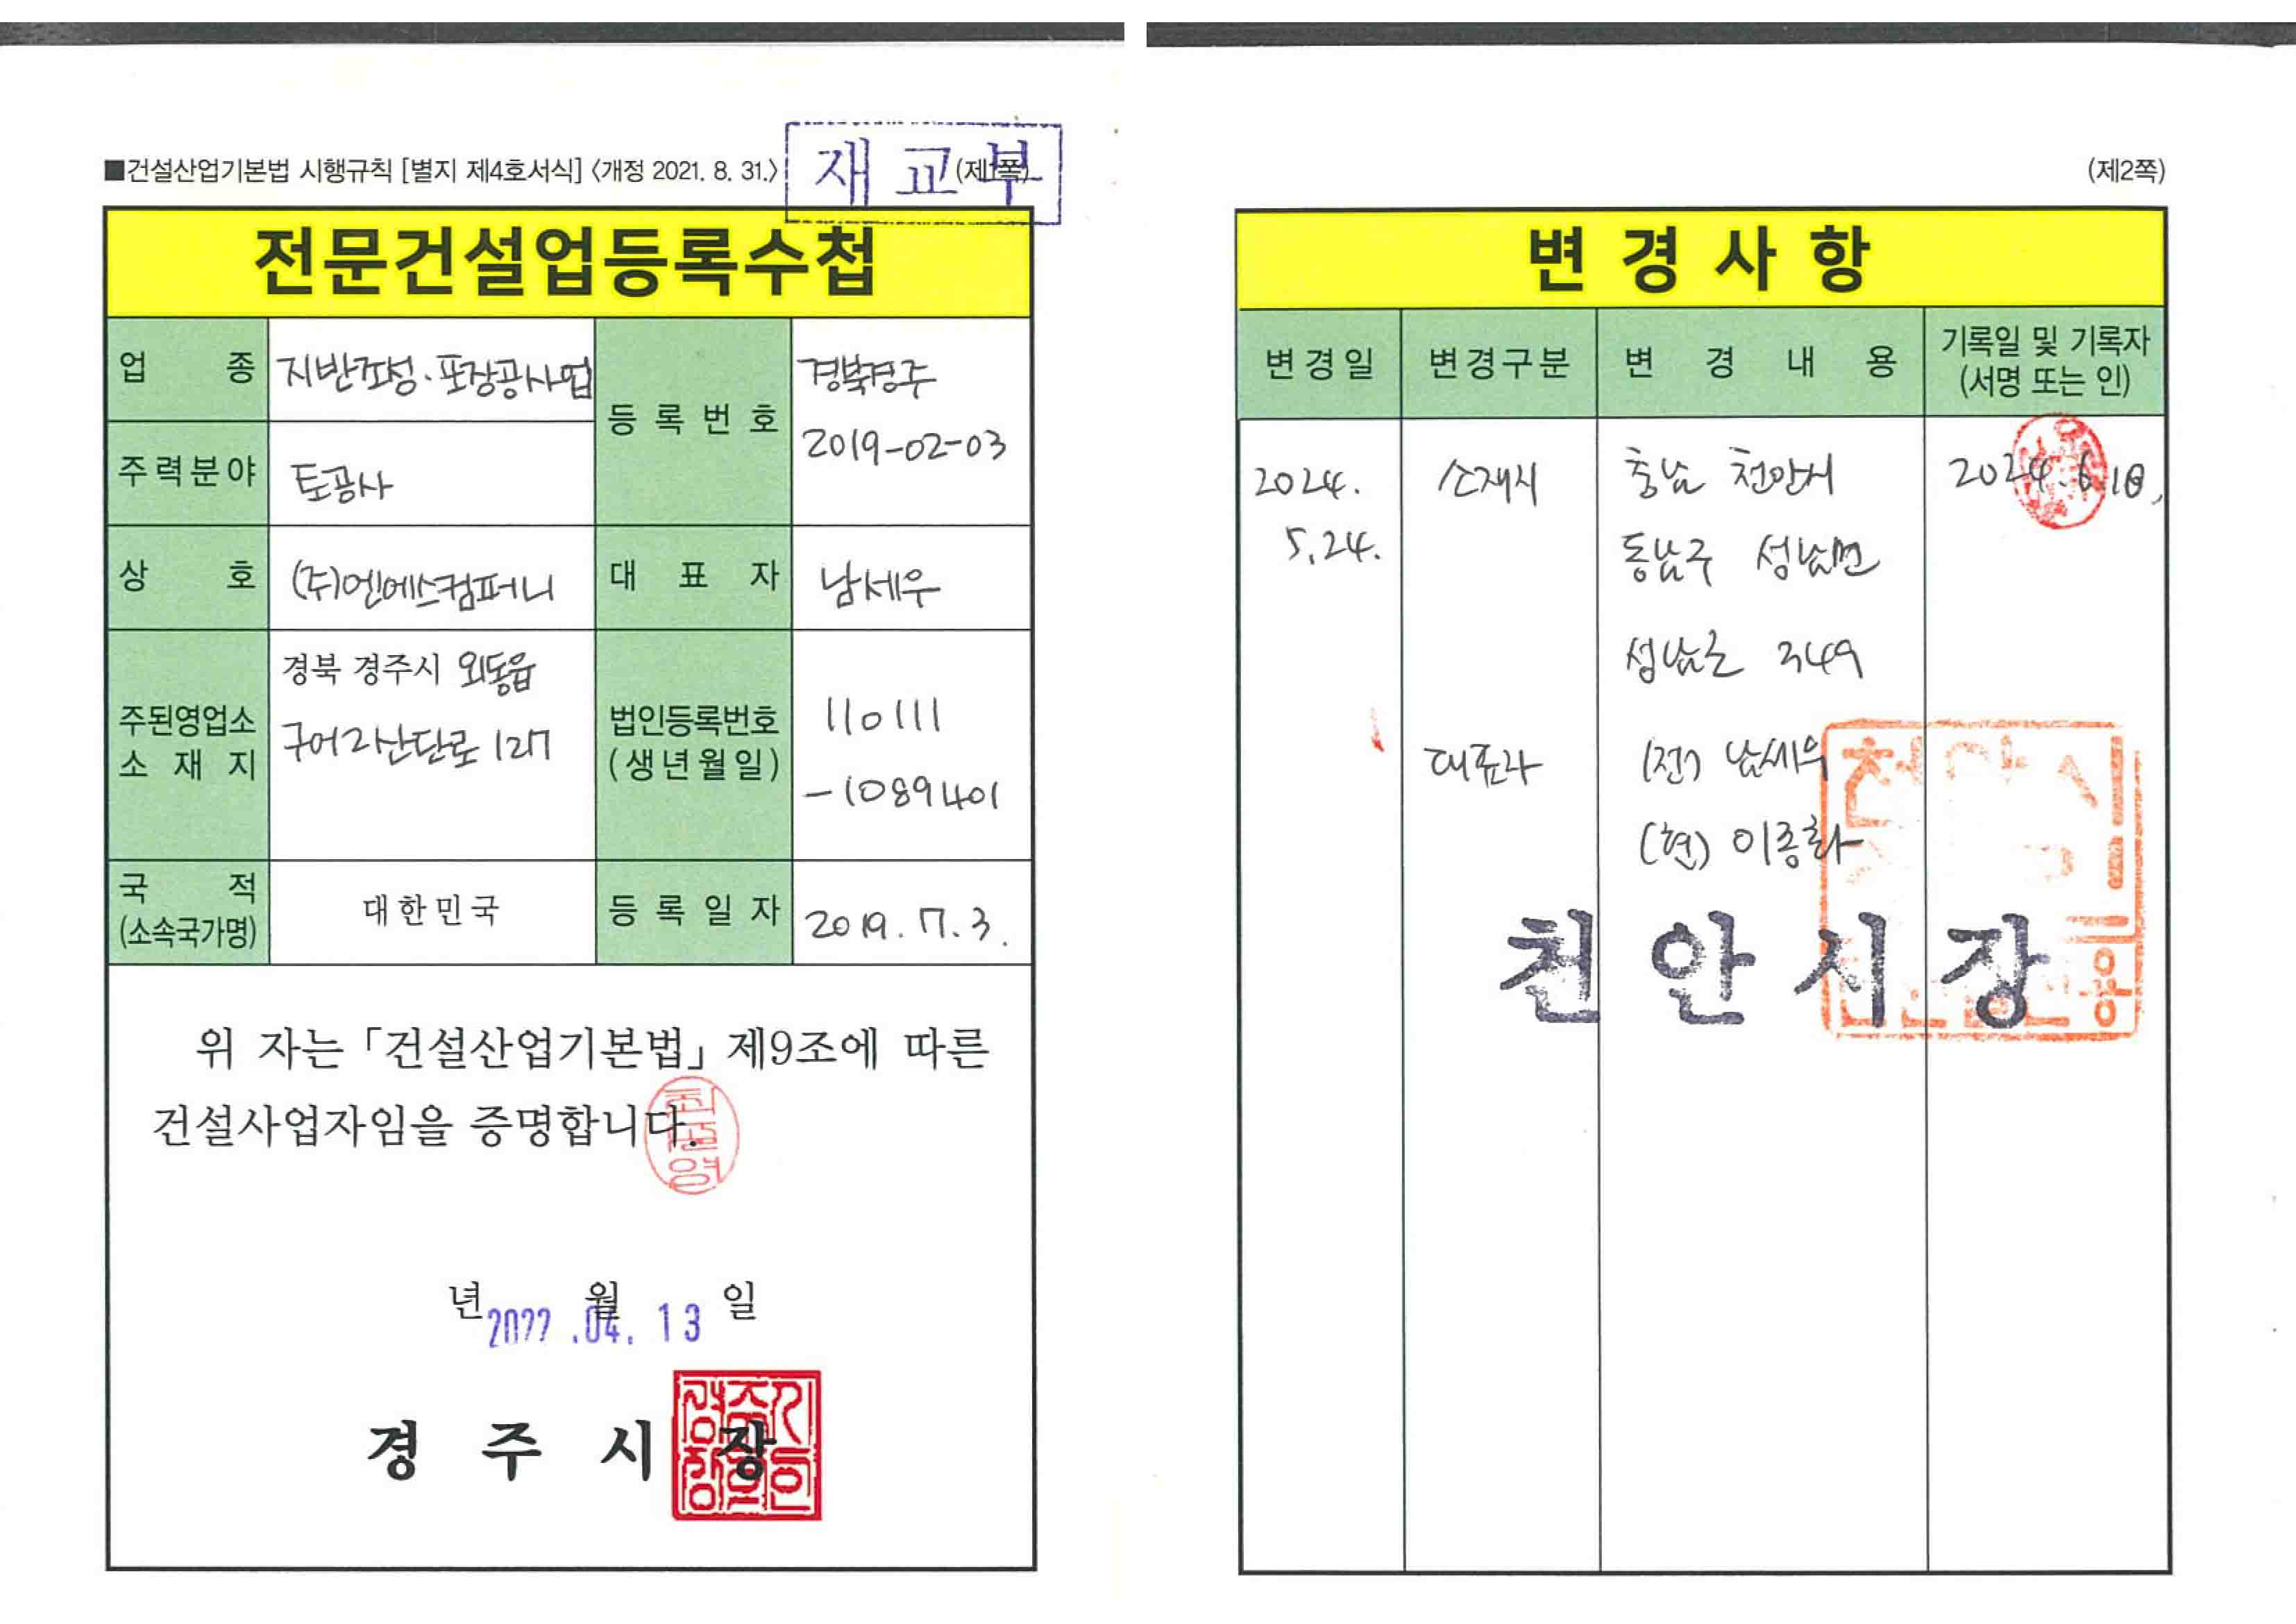 ■건설산업기본법 시행규칙 [별지 제4호서식] <개정 2021. 8. 31.>
재교부
(제1쪽)
전문건설업등록수첩
업 종
지반조성·포장공사업
등 록 번 호
경북경주
2019-02-03
주력분야
토공사
상 호
(주)엔에스컴퍼니
대 표 자
남세우
주된영업소
소 재 지
경북 경주시 외동읍
구어2산단로 127
법인등록번호
(생년월일)
110111
-1089401
국 적
(소속국가명)
대한민국
등 록 일 자
2019. 7. 3.
위 자는 「건설산업기본법」 제9조에 따른
건설사업자임을 증명합니다.
년 월 일
2022 .04. 13
경 주 시 장
(제2쪽)
변 경 사 항
변경일
변경구분
변 경 내 용
기록일 및 기록자
(서명 또는 인)
2024.
5.24.
소재지
충남 천안시
동남구 성남면
성남로 349
2024.6.18.
대표자
(전) 남세우
(현) 이종화
천 안 시 장